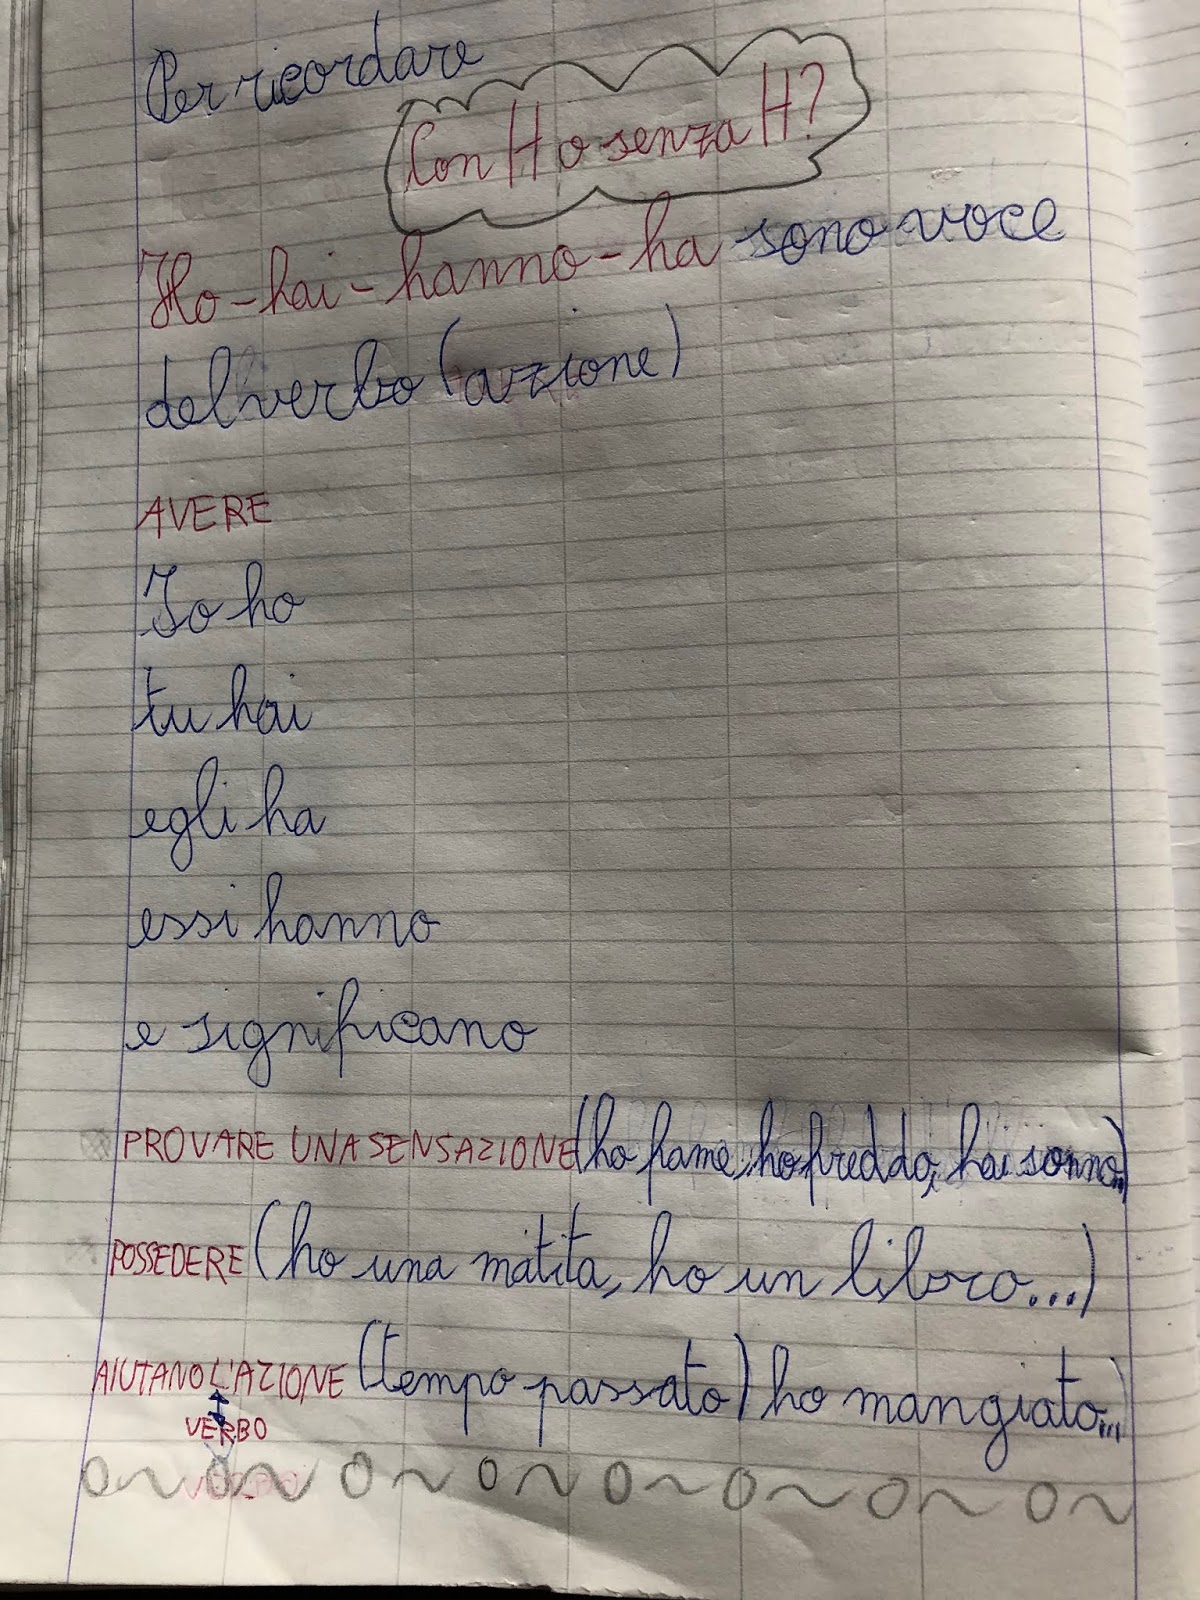 Per ricordare
Con H o senza H?
Ho-hai-hanno-ha sono voce
del verbo (azione)
AVERE
Io ho
tu hai
egli ha
essi hanno
e significano
PROVARE UNA SENSAZIONE (ho fame, ho freddo, hai sonno...)
POSSEDERE (ho una matita, ho un libro...)
AIUTANO L'AZIONE (tempo passato) ho mangiato...)
VERBO